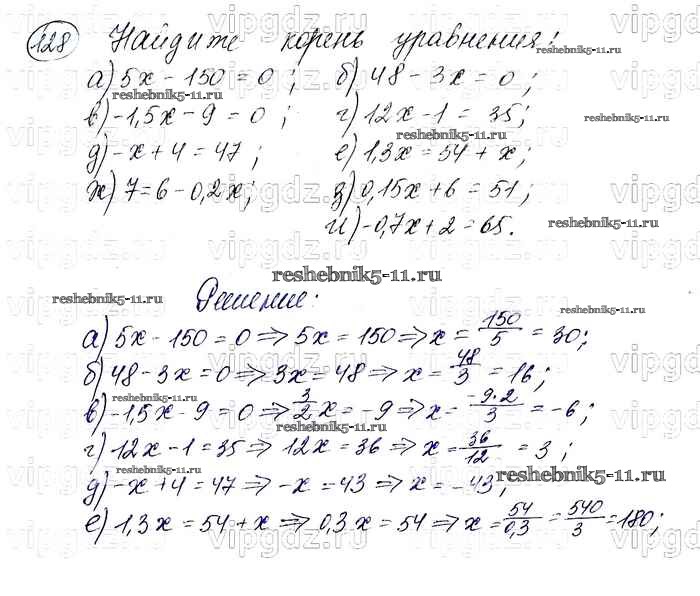 128 Найдите корень уравнения:
а) 5x - 150 = 0; б) 48 - 3x = 0;
в) -1,5x - 9 = 0; г) 12x - 1 = 35;
д) -x + 4 = 47; е) 1,3x = 54 + x;
ж) 7 = 6 - 0,2x; з) 0,15x + 6 = 51;
и) -0,7x + 2 = 65.
reshebnik5-11.ru
Решение:
а) 5x - 150 = 0 => 5x = 150 => x = 150/5 = 30;
б) 48 - 3x = 0 => 3x = 48 => x = 48/3 = 16;
в) -1,5x - 9 = 0 => 3/2 x = -9 => x = -9·2/3 = -6;
г) 12x - 1 = 35 => 12x = 36 => x = 36/12 = 3;
д) -x + 4 = 47 => -x = 43 => x = -43;
е) 1,3x = 54 + x => 0,3x = 54 => x = 54/0,3 = 540/3 = 180;